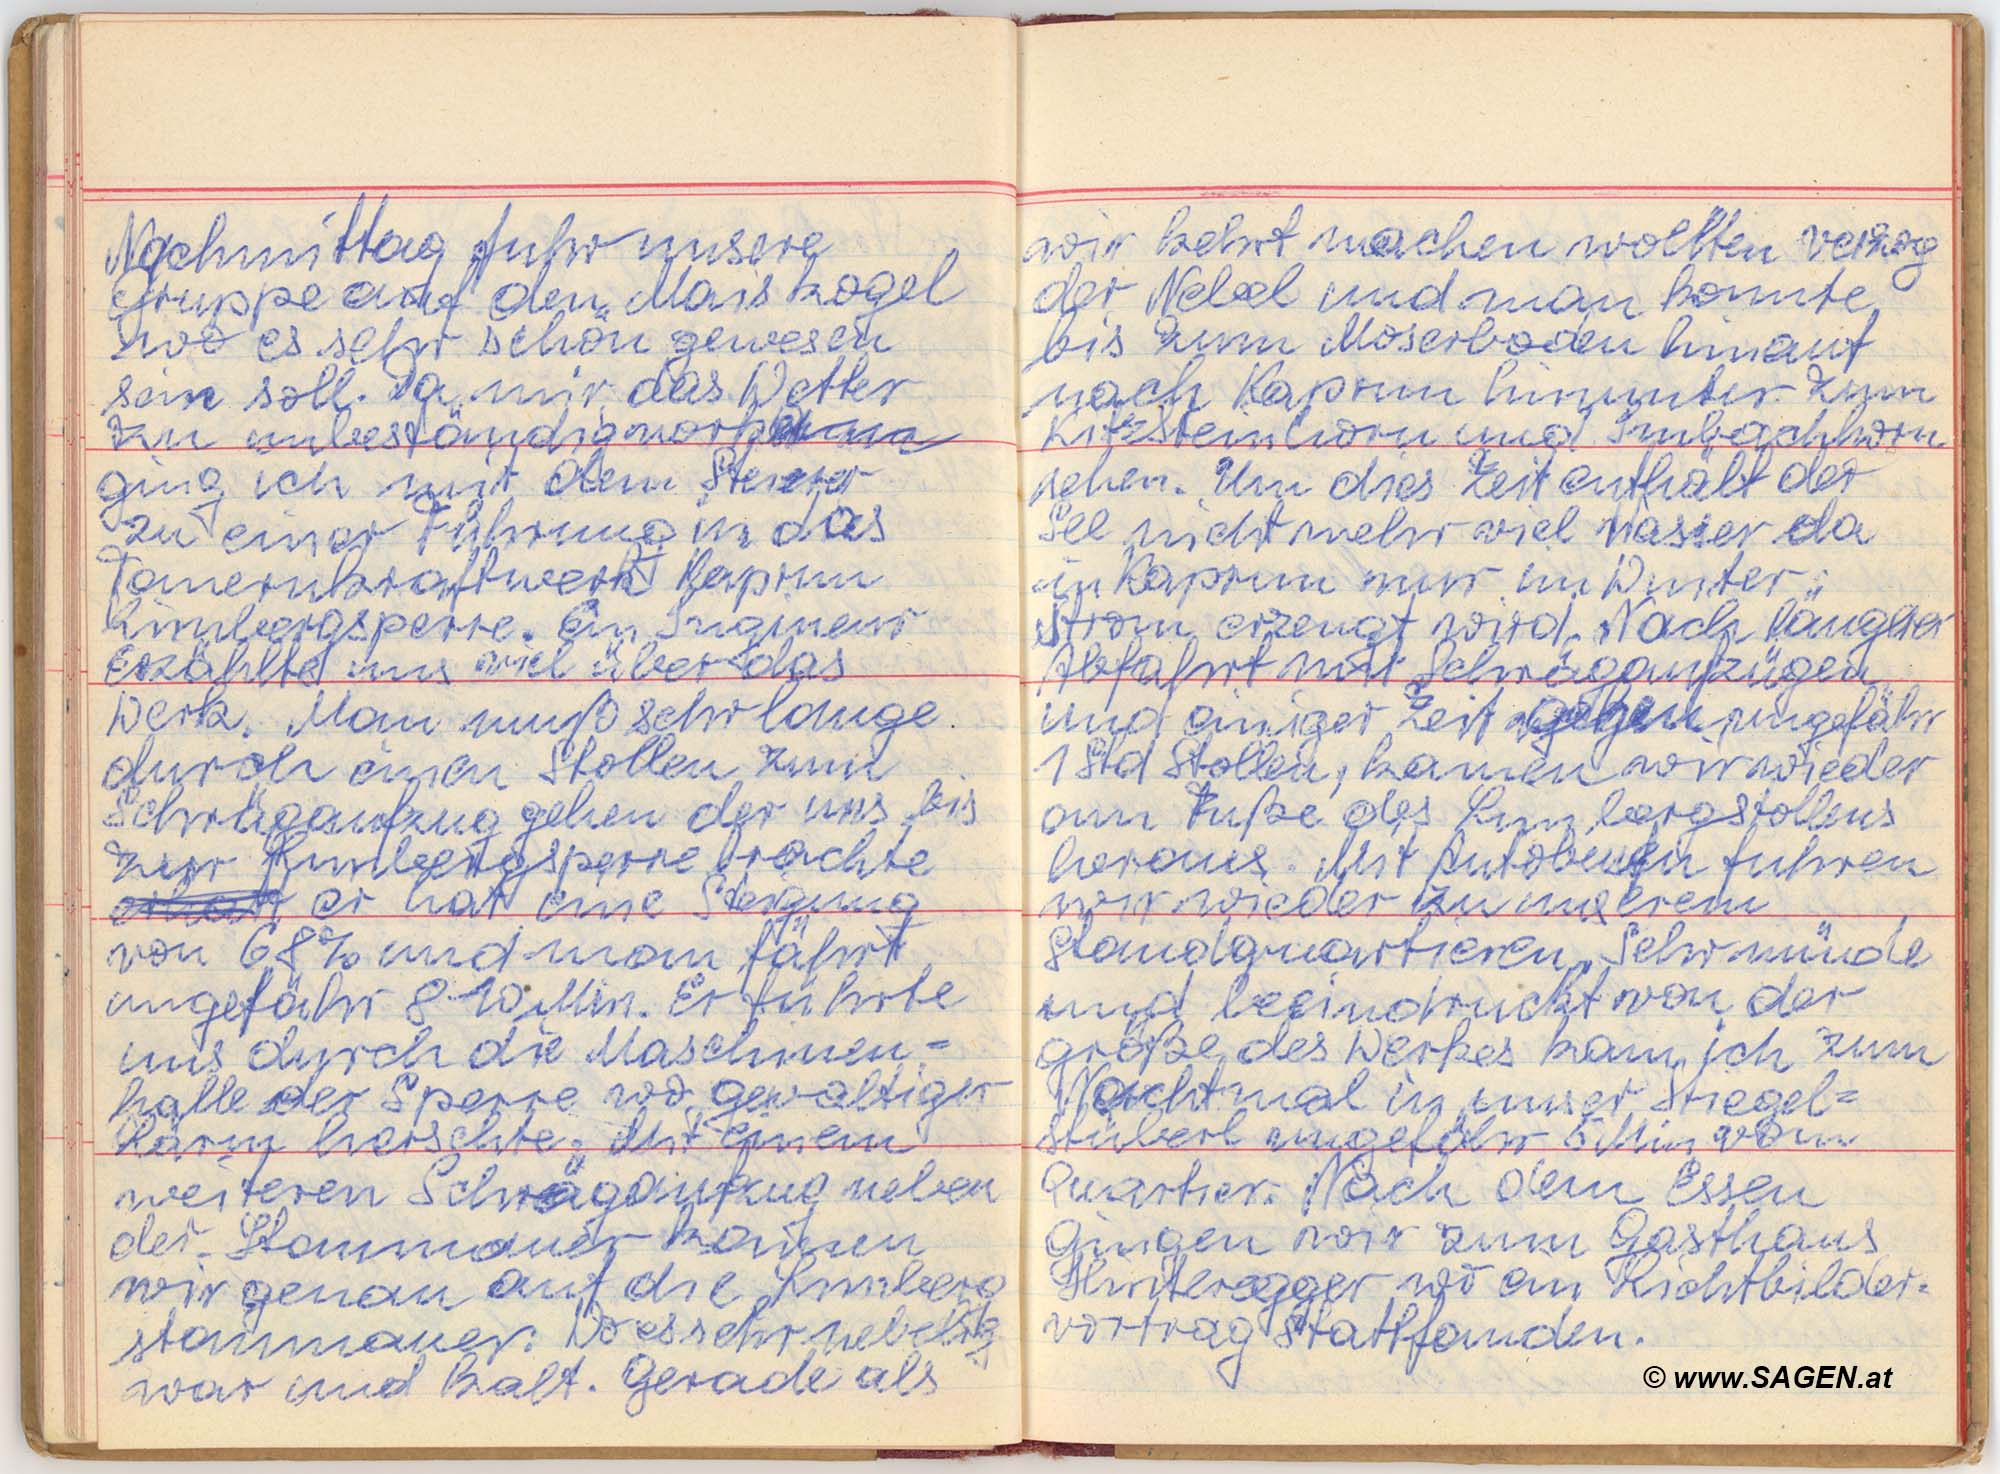 Nachmittag fuhr unsere
Gruppe auf den Maiskogel
wo es sehr schön gewesen
sein soll. Da mir das Wetter
zu unbeständig vorkam
ging ich mit dem Steirer
zu einer Führung in das
Tauernkraftwerk Kaprun
Limbergsperre. Ein Ingineur
Erzählte uns viel über das
Werk. Man muß sehr lange
durch einen Stollen zum
Schrägaufzug gehen der uns bis
zur Limbergsperre brachte
er hat eine Steigung
von 68% und man fährt
ungefähr 8-10 Min. Er führte
uns durch die Maschinen=
halle der Sperre wo gewaltiger
Lärm herschte. Mit einem
weiteren Schrägaufzug neben
der Staumauer kamen
wir genau auf die Limberg
staumauer. Wo es sehr nebelig
war und kalt. Gerade als
wir kehrt machen wollten verzog
der Nebel und man konnte
bis zum Moserboden hinauf
nach Kaprun hinunter zum
Kitzsteinhorn und Imbachhorn
sehen. Um dies Zeit enthält der
See nicht mehr viel Wasser da
in Kaprun nur im Winter
Strom erzeugt wird. Nach länger
Abfahrt mit Schrägaufzügen
und einiger Zeit gehen ungefähr
1 Std Stollen, kamen wir wieder
am Fuße des Limbergstollens
heraus. Mit Autobusen fuhren
wir wieder zu unserem
Standquartieren. Sehr münde
und beeindruckt von der
größe des Werkes kam ich zum
Nachtmal in unser Stiegel=
stüberl ungefähr 5 Min vom
Quartier. Nach dem Essen
Gingen wir zum Gasthaus
Hinteregger wo ein Lichtbilder=
vortrag stattfanden.
© www.SAGEN.at